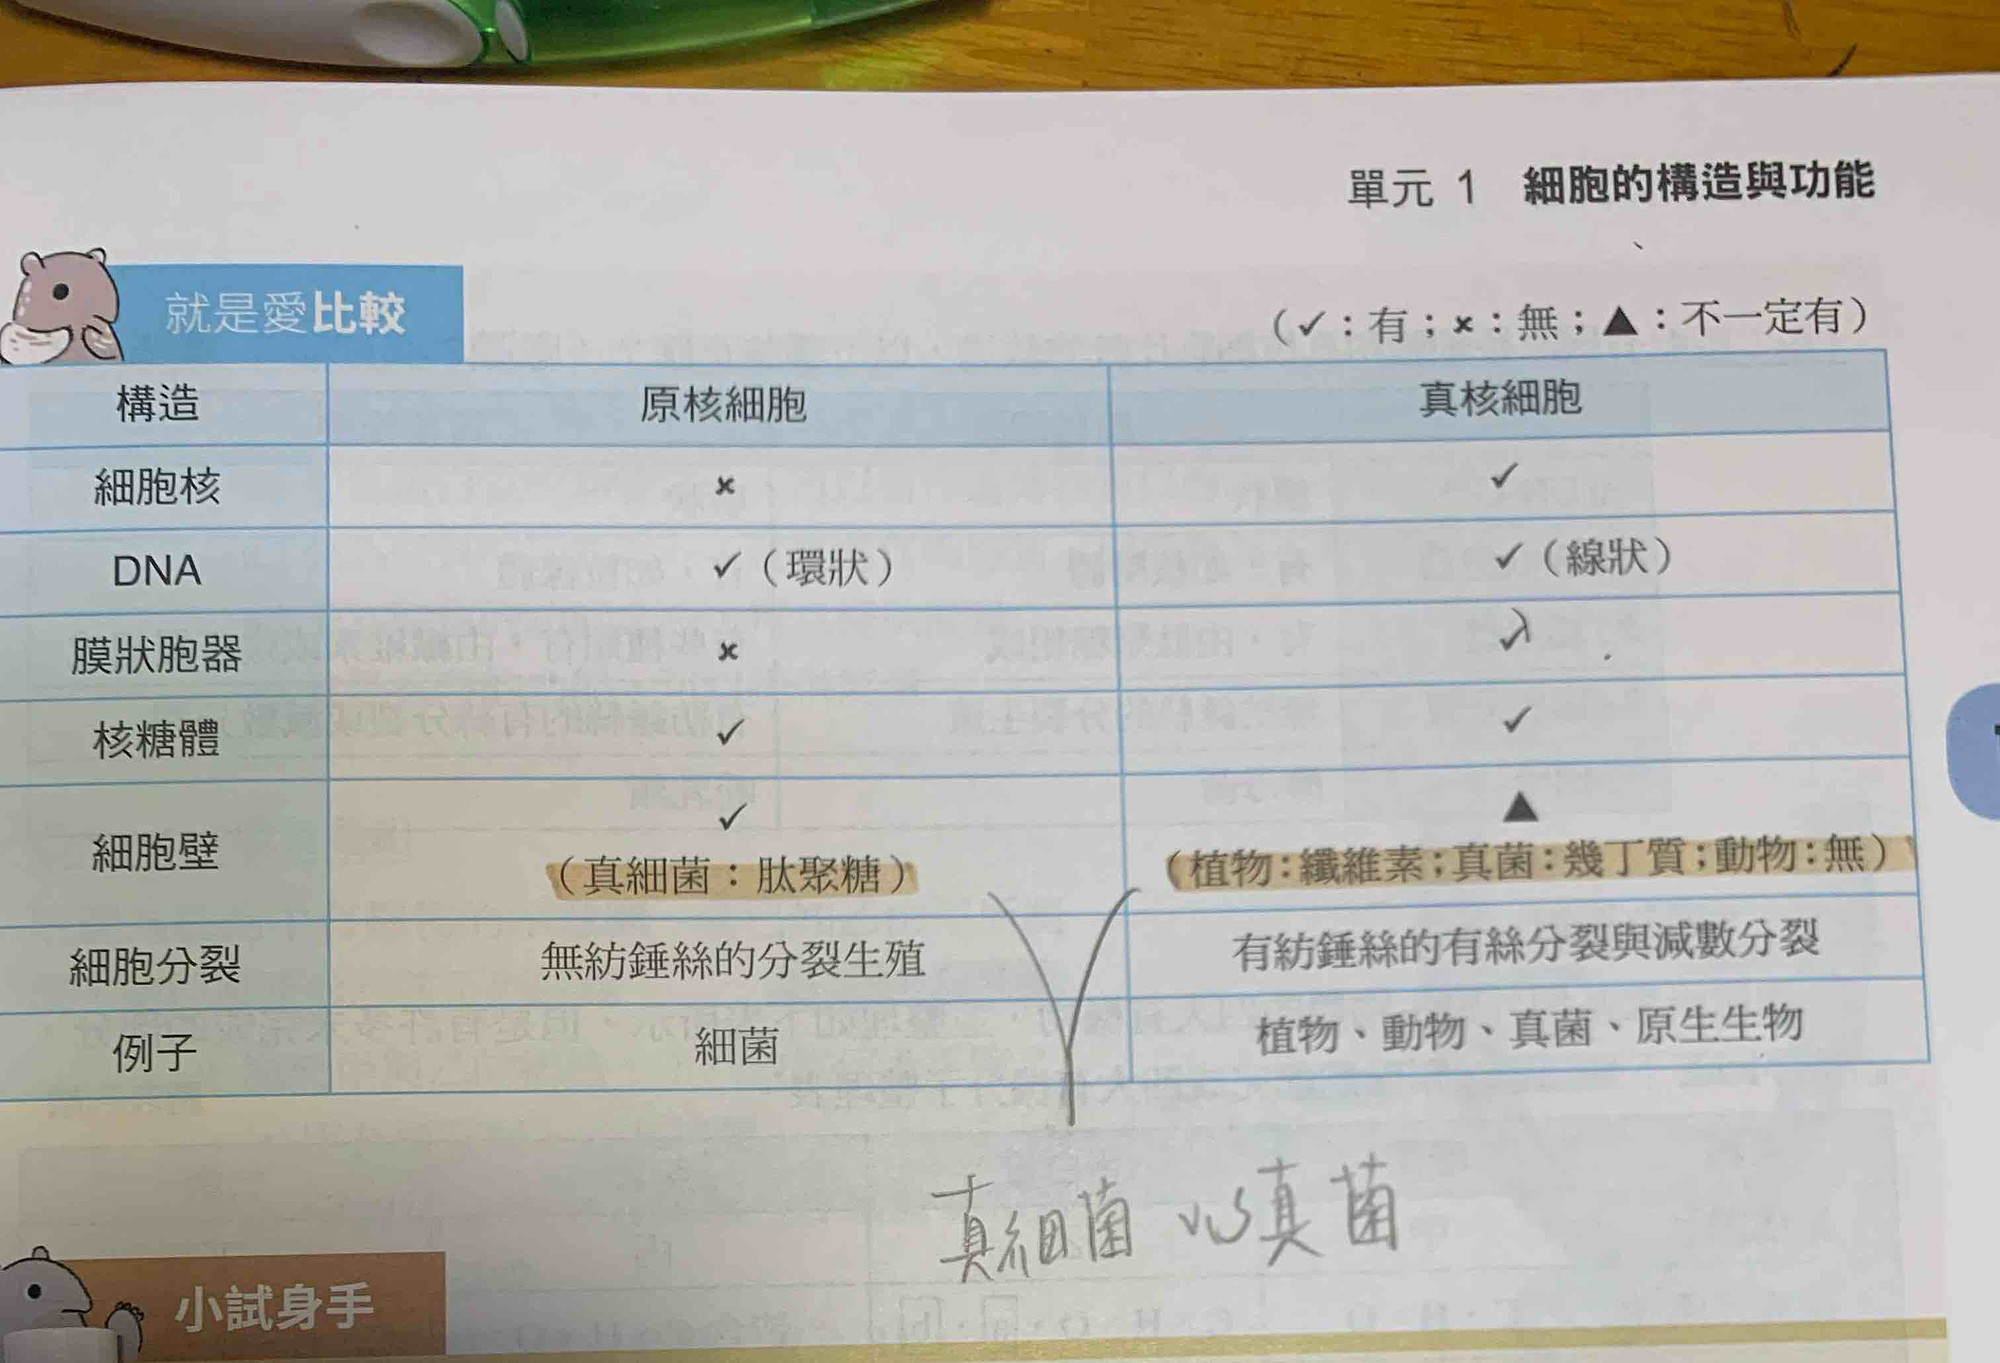 單元 1 細胞的構造與功能
就是愛比較
（✓：有；×：無；▲：不一定有）
構造 原核細胞 真核細胞
細胞核 × ✓
DNA ✓（環狀） ✓（線狀）
膜狀胞器 × ✓
核糖體 ✓ ✓
細胞壁 ✓（真細菌：肽聚糖） ▲（植物：纖維素；真菌：幾丁質；動物：無）
細胞分裂 無紡錘絲的分裂生殖 有紡錘絲的有絲分裂與減數分裂
例子 細菌 植物、動物、真菌、原生生物
真細菌 vs 真菌
小試身手